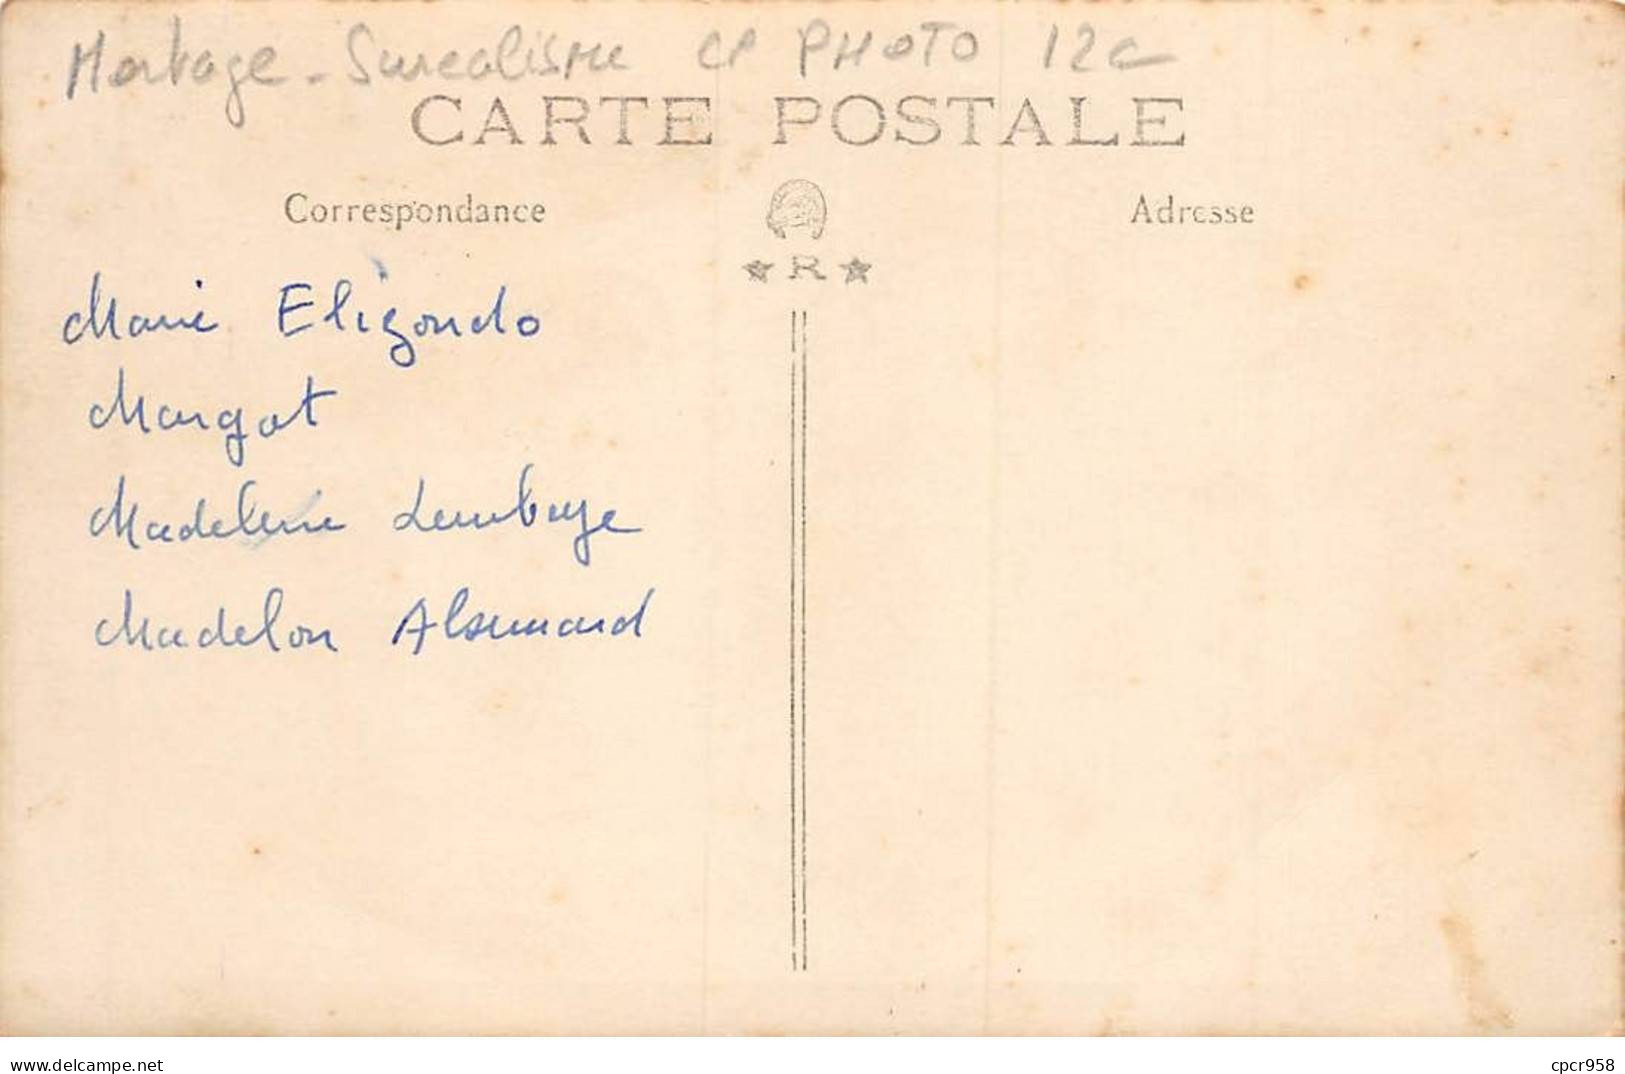 Montage - Surealisme CP PHOTO 12c
CARTE POSTALE
Correspondance
Adresse
★ R ★
Marie Eligondo
Margot
Madeleine
Madelon
www.delcampe.net
cpcr958